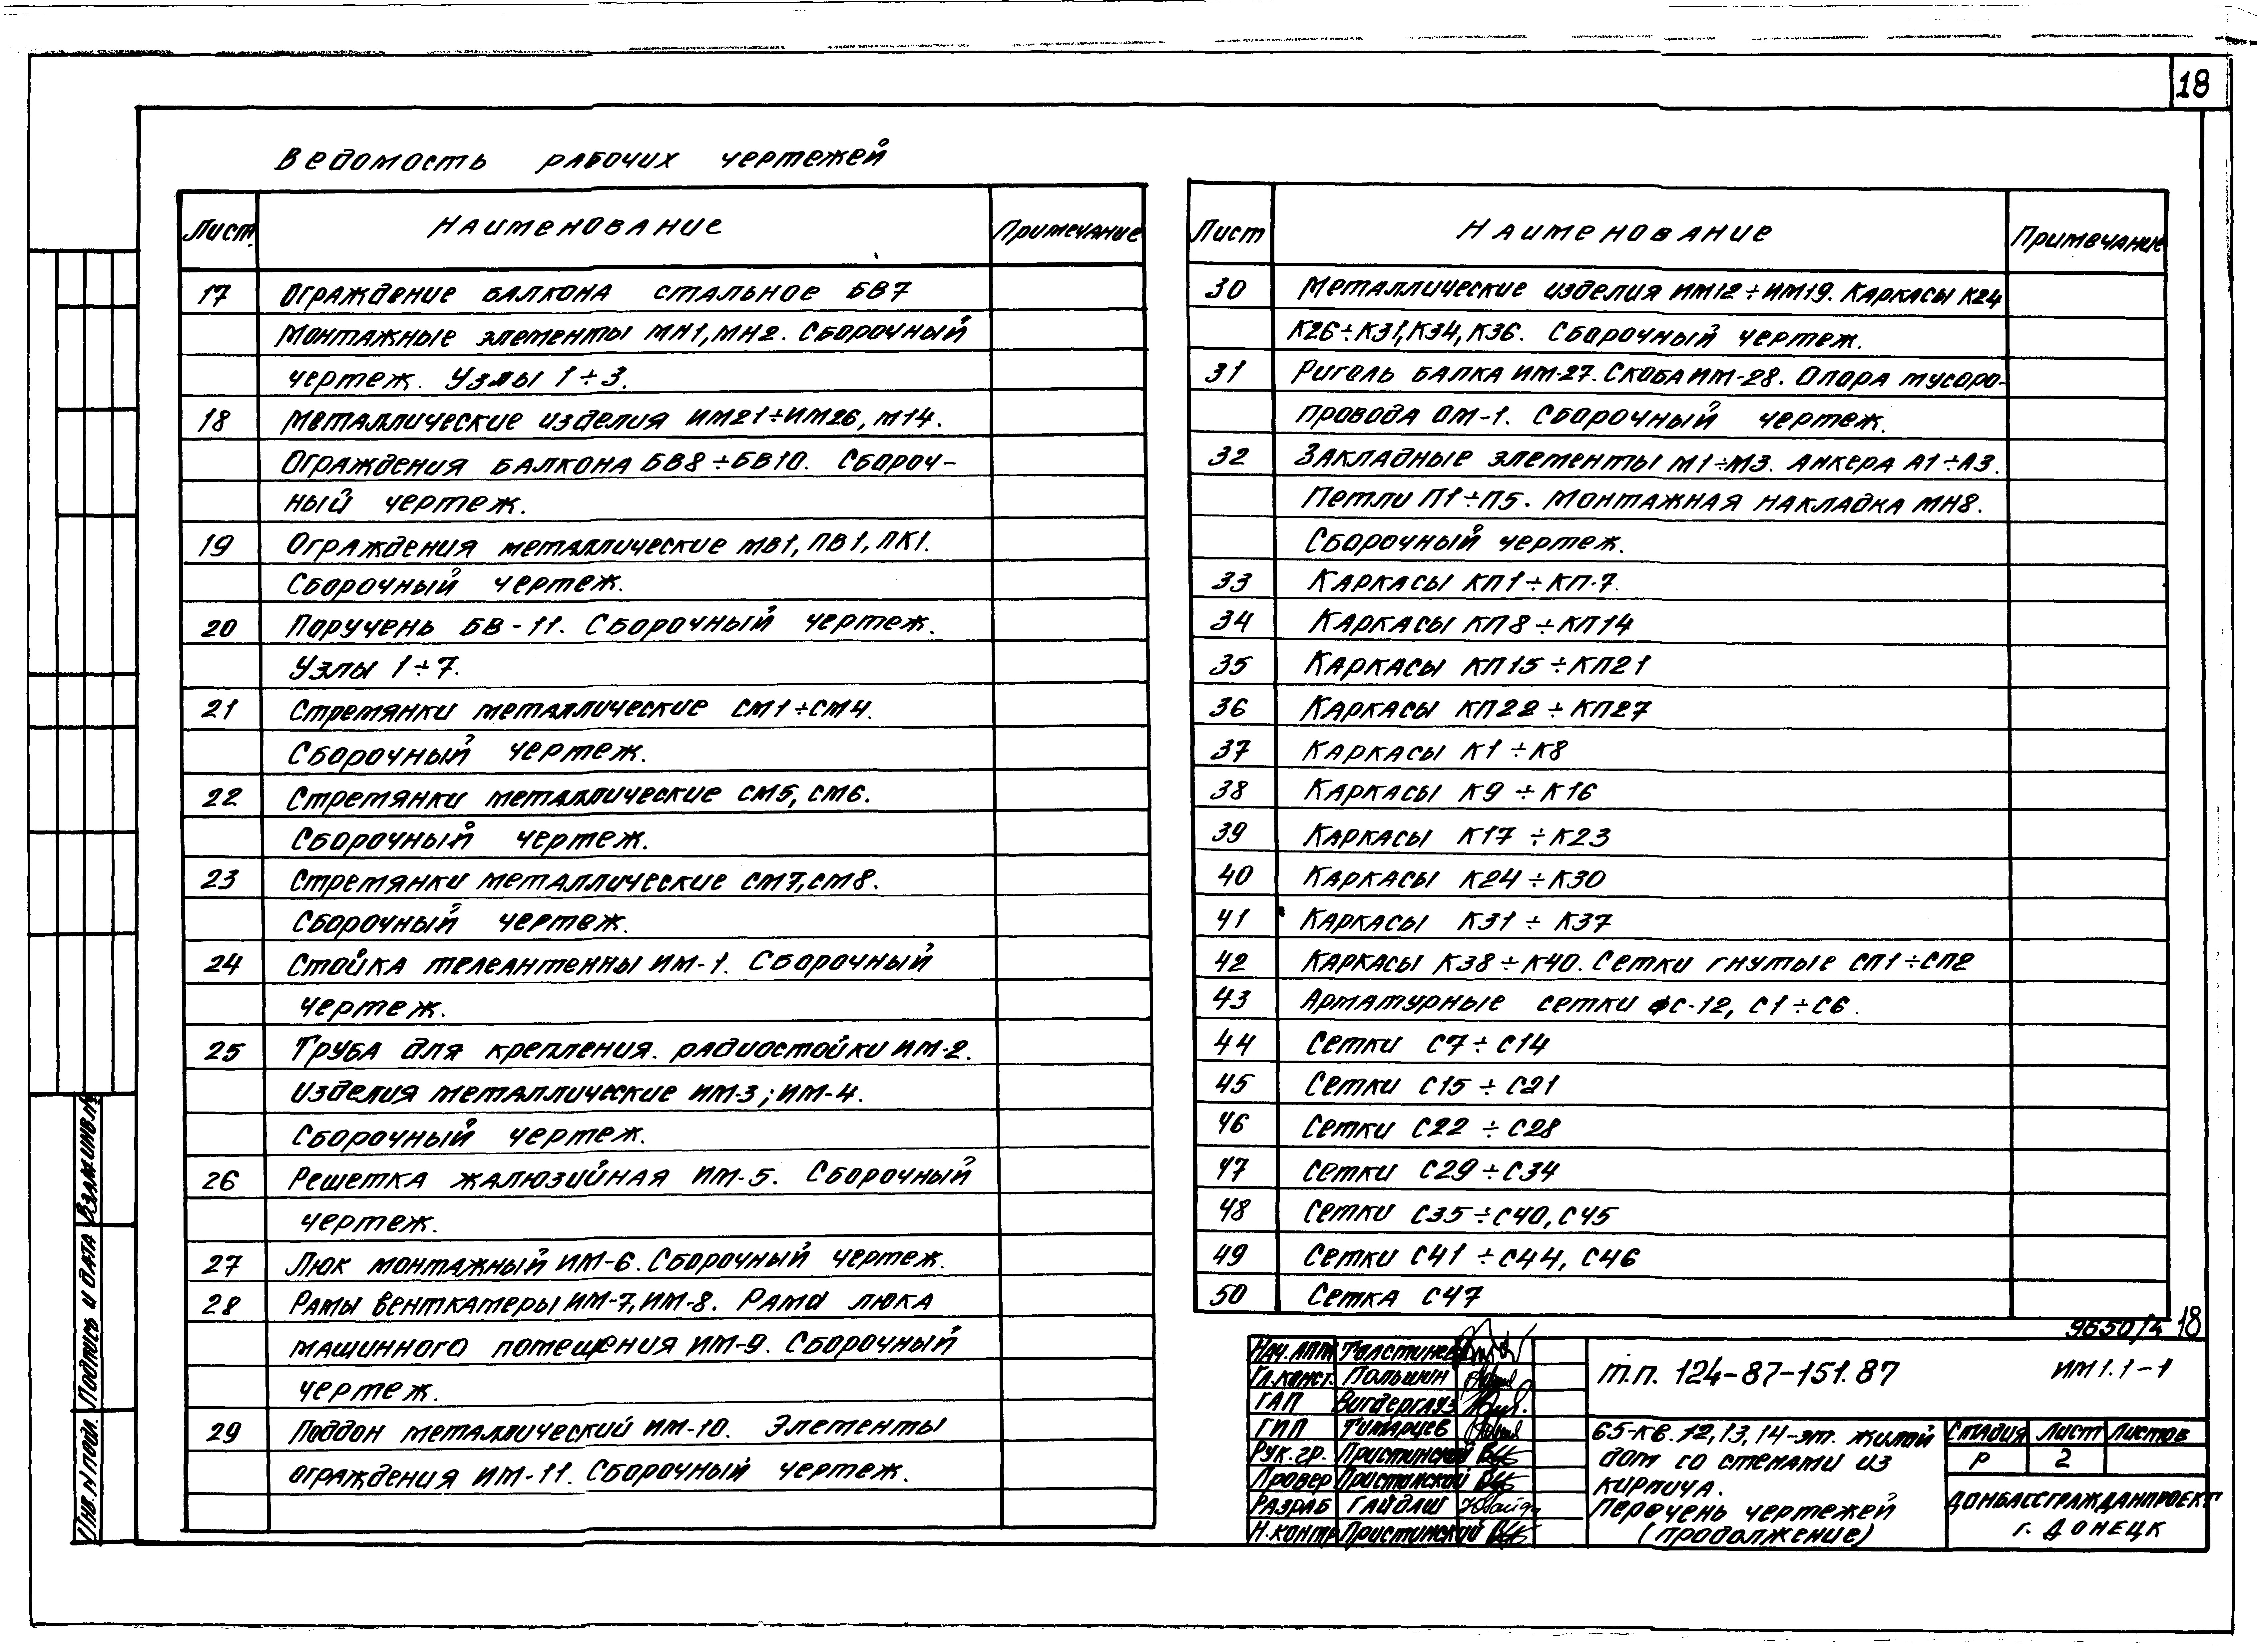 18
Ведомость рабочих чертежей
Лист Наименование Примечание
17 Ограждение балкона стальное БВ7
Монтажные элементы МН1, МН2. Сборочный
чертеж. Узлы 1÷3.
18 Металлические изделия ИМ21÷ИМ26, М14.
Ограждения балкона БВ8÷БВ10. Сбороч-
ный чертеж.
19 Ограждения металлические МВ1, ПВ1, ПК1.
Сборочный чертеж.
20 Поручень БВ-11. Сборочный чертеж.
Узлы 1÷7.
21 Стремянки металлические СМ1÷СМ4.
Сборочный чертеж.
22 Стремянки металлические СМ5, СМ6.
Сборочный чертеж.
23 Стремянки металлические СМ7, СМ8.
Сборочный чертеж.
24 Стойка телеантенны ИМ-1. Сборочный
чертеж.
25 Труба для крепления. радиостойки ИМ-2.
Изделия металлические ИМ-3; ИМ-4.
Сборочный чертеж.
26 Решетка жалюзийная ИМ-5. Сборочный
чертеж.
27 Люк монтажный ИМ-6. Сборочный чертеж.
28 Рамы венткамеры ИМ-7, ИМ-8. Рама люка
машинного помещения ИМ-9. Сборочный
чертеж.
29 Поддон металлический ИМ-10. Элементы
ограждения ИМ-11. Сборочный чертеж.
Лист Наименование Примечание
30 Металлические изделия ИМ12÷ИМ19. Каркасы К24
К26÷К31, К34, К36. Сборочный чертеж.
31 Ригель балка ИМ-27. Скоба ИМ-28. Опора мусоро-
провода ОМ-1. Сборочный чертеж.
32 Закладные элементы М1÷М3. Анкера А1÷А3.
Петли П1÷П5. Монтажная накладка МН8.
Сборочный чертеж.
33 Каркасы КП1÷КП-7.
34 Каркасы КП8÷КП14
35 Каркасы КП15÷КП21
36 Каркасы КП22÷КП27
37 Каркасы К1÷К8
38 Каркасы К9÷К16
39 Каркасы К17÷К23
40 Каркасы К24÷К30
41 Каркасы К31÷К37
42 Каркасы К38÷К40. Сетки гнутые СП1÷СП2
43 Арматурные сетки ФС-12, С1÷С6.
44 Сетки С7÷С14
45 Сетки С15÷С21
46 Сетки С22÷С28
47 Сетки С29÷С34
48 Сетки С35÷С40, С45
49 Сетки С41÷С44, С46
50 Сетка С47
9650/4 18
Нач. АПМ
Гл. конст. Польшин
ГАП Вигдергауз
ГИП Тимарцев
Рук. гр. Пристинский
Провер Пристинской
Разраб Гайдаш
Н. контр Пристинский
т.п. 124-87-151.87 ИМ1.1-1
65-кв. 12, 13, 14-эт. жилой
дом со стенами из
кирпича.
Перечень чертежей
(продолжение)
Стадия Лист Листов
Р 2
Донбассгражданпроект
г. Донецк
Взам. инв. №
Подпись и дата
Инв. № подл.